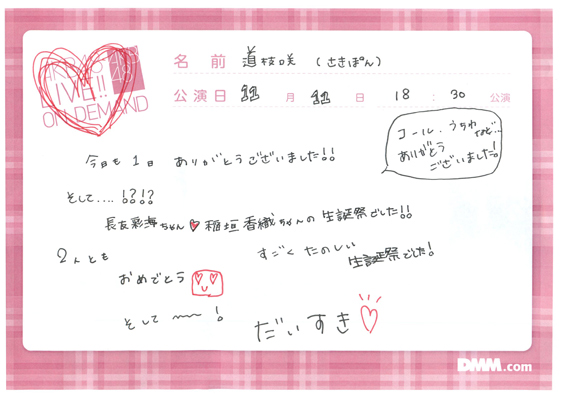 LIVE!!
ON DEMAND
名前 道枝咲 (さきぽん)
公演日 月 日 18:30 公演
コール、うちわ など…
ありがとう
ございました!
今日も1日 ありがとうございました!!
そして.... !?!?
長友彩海ちゃん♡稲垣香織ちゃんの生誕祭でした!!
2人とも
すごくたのしい
生誕祭でした!
おめでとう
そして〜〜!
だいすき♡
DMM.com